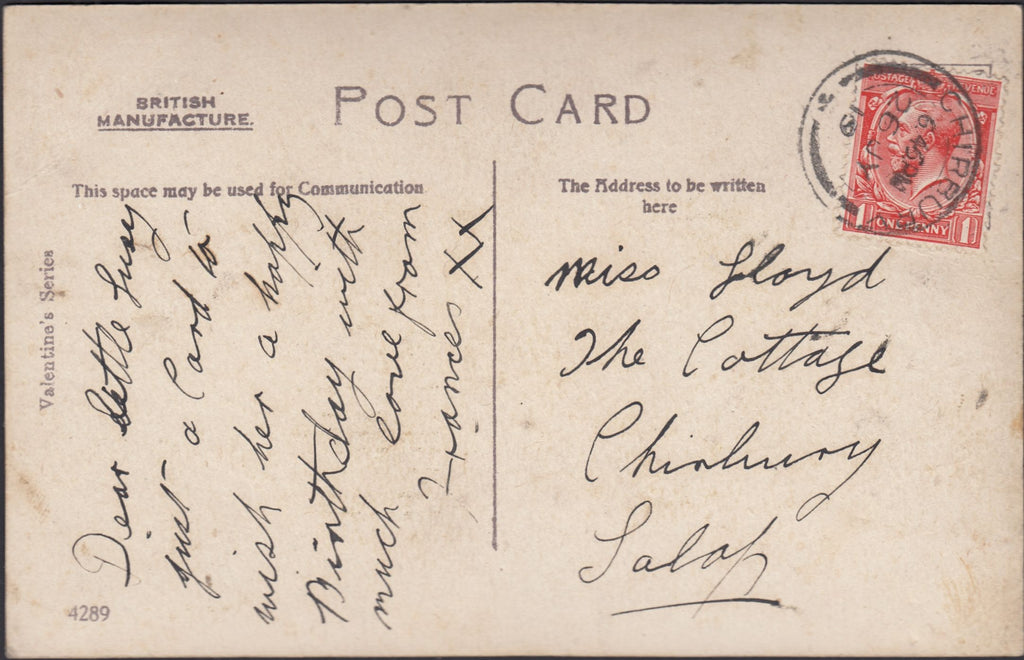 BRITISH
MANUFACTURE.
POST CARD
This space may be used for Communication
The Address to be written
here
Valentine's Series
Dear little Susy
just a Card to
wish her a happy
Birthday with
much love from
Frances XX
4289
Miss Lloyd
The Cottage
Chirbury
Salop
CHIRBURY
POSTAGE REVENUE
1 ONE PENNY 1